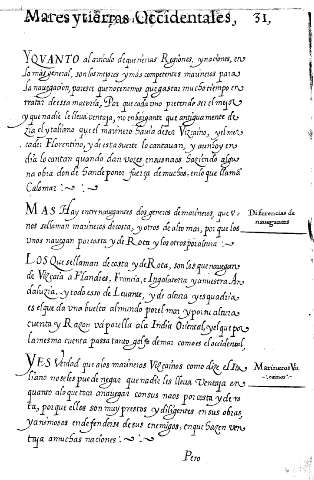 Mares y tierras Occidentales, 31,
Y QVANTO al articulo de que nerias Regiones, y naciones, en
lo mas general, son los mejores y mas competentes marineros para
la navegacion, parece que no tenemos que gastar mucho tiempo en
tratar de esta materia, Por que cada uno pretende ser el mejor
y que nadie le lleva ventaja, no obstante que antiguamente de
zia el ytaliano que el marinero havia de ser Vizcaino, y el mer
cader Florentino, y de esta suerte lo cantauan, y aun hoy en
dia lo cantan quando dan vozes en sus naos haziendo algu
na obra donde han de poner fuerza de muchos, en lo que llamã
Calomar
MAS Hay entre nauegantes dos generos de marineros, que v
nos se llaman marineros de costa, y otros de alto mar, por que los
vnos nauegan por costa y de Rota y los otros por altura
Diferencias de
nauegantes
LOS Que se llaman de costa y de Rota, son los que nauegan
de Vizcaia a Flandres, Francia, e Ingalaterra y a nuestra An
daluzia, y todo eso de Leuante, y de altura y esquadria
es el que da una buelta al mundo por el mar y por su altura
cuenta y Razon va por ella a la India Oriental, y el que por
la mesma cuenta passa tanto golfo de mar como es el occidental
YES Verdad que a los marineros Vizcainos como dize el Ita
liano no se les puede negar que nadie les lleva Ventaja en
quanto a lo que toca a nauegar con sus naos por costa y de ro
ta, por que ellos son muy prestos y diligentes en sus obras,
y animosos en defenderse de sus enemigos, en que hazen ven
taja a muchas naciones
Marineros Viz
cainos
Pero